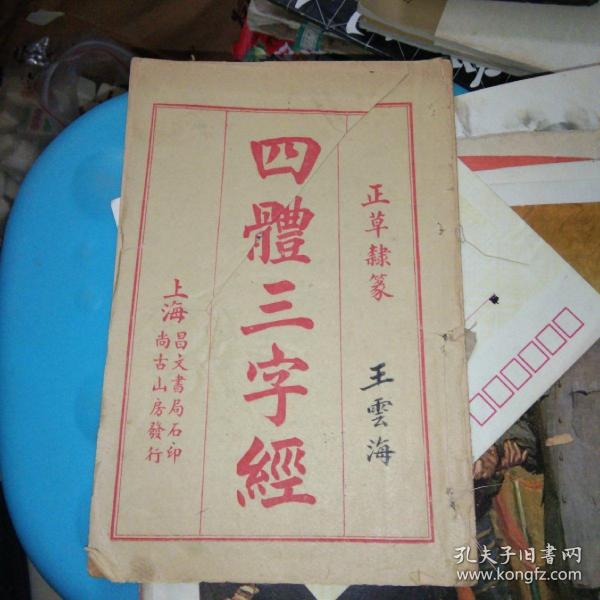 正草隸篆
王雲海
四體三字經
上海
昌文書局石印
尚古山房發行
孔夫子旧书网
www.kongfz.com